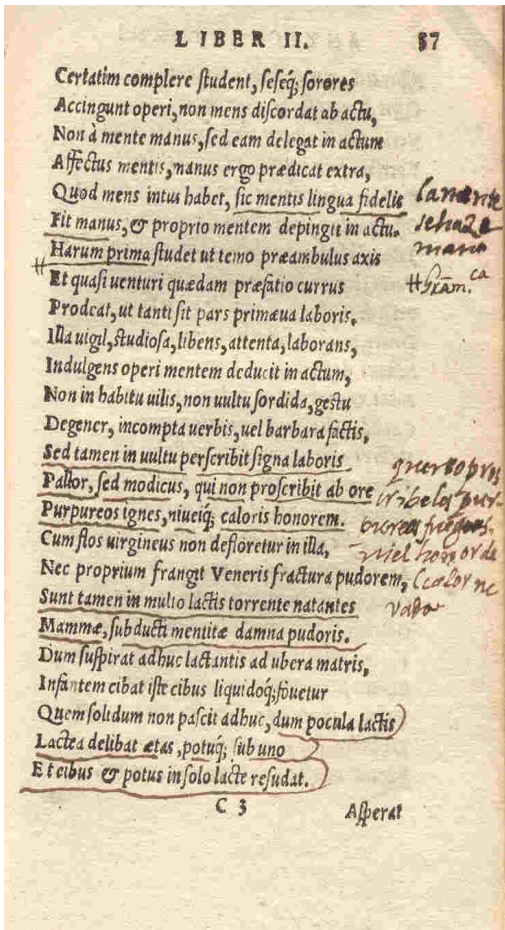 LIBER II. 37
Certatim complere student, seseq́; sorores
Accingunt operi, non mens discordat ab actu,
Non à mente manus, sed eam delegat in actum
Affectus mentis, manus ergo prædicat extra,
Quod mens intus habet, sic mentis lingua fidelis
Fit manus, & proprio mentem depingit in actu.
Harum prima studet ut temo præambulus axis
Et quasi uenturi quædam præfatio currus
Prodeat, ut tanti sit pars primæua laboris,
Illa uigil, studiosa, libens, attenta, laborans,
Indulgens operi mentem deducit in actum,
Non in habitu uilis, non uultu sordida, gestu
Degener, incompta uerbis, uel barbara factis,
Sed tamen in uultu perscribit signa laboris
Pallor, sed modicus, qui non proscribit ab ore
Purpureos ignes, niueiq́; caloris honorem.
Cum flos uirgineus non defloretur in illa,
Nec proprium frangit Veneris fractura pudorem,
Sunt tamen in multo lactis torrente natantes
Mammæ, subducti mentitæ damna pudoris.
Dum suspirat adhuc lactantis ad ubera matris,
Infantem cibat iste cibus liquidoq́; fouetur
Quem solidum non pascit adhuc, dum pocula lactis
Lactea delibat ætas, potuq́; sub uno
Et cibus & potus in solo lacte resudat.
C 3 Asperat
la mente
se haze
mano
Grām.ca